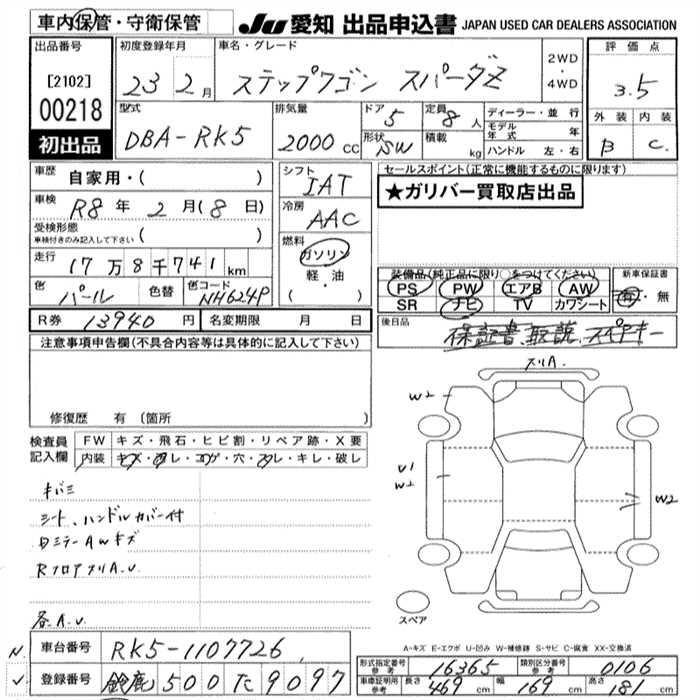 車内保管・守衛保管
JU 愛知 出品申込書 JAPAN USED CAR DEALERS ASSOCIATION
出品番号
[2102]
00218
初出品
初度登録年月
23 2月
車名・グレード
ステップワゴン スパーダZ
2WD
・
4WD
評価点
3.5
外装 内装
B C
型式
DBA-RK5
排気量
2000 CC
ドア
5
形状
SW
定員
8人
積載
kg
ディーラー・並行
モデル年式 年
ハンドル 左・右
車歴
自家用・( )
車検
R8年 2月(8日)
受検形態
車検付きのみ記入して下さい ( )
走行
17万8千741km
色
パール
色替
色コード
NH624P
シフト
IAT
冷房
AAC
燃料
ガソリン
軽・油
( ・ )
セールスポイント(正常に機能するものに限ります)
★ガリバー買取店出品
装備品(純正品に限り○をつけてください)
PS PW エアB AW
SR ナビ TV カワシート
新車保証書
有・無
R券 13940円
名変期限 月 日
後日品
保証書、取説、スペアキー
注意事項申告欄(不具合内容等は具体的に記入して下さい)
修復歴 有(箇所
検査員記入欄
FW キズ・飛石・ヒビ割・リペア跡・X要
内装 キズ・汚レ・コゲ・穴・スレ・キレ・破レ
キバミ
シート、ハンドルカバー付
ミラーAWキズ
RフロアスリA.U.
各A.U.
スリA.
W2
U1
W2
W2
スペア
A-キズ E-エクボ U-凹み W-補修跡 S-サビ C-腐食 XX-交換済
N.
車台番号
RK5-1107726
✓
登録番号
鈴鹿 500 た 9097
形式指定番号
参考
16365
類別区分番号
参考
0106
車庫証明用
参考
長さ 469cm
幅 169cm
高さ 181cm